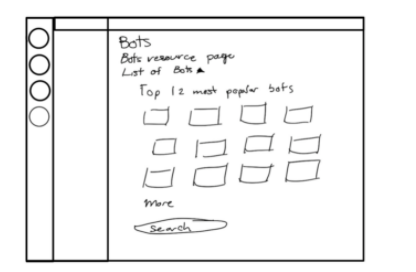 Bots
Bots resource page
List of Bots ▲
Top 12 most popular bots
more
search